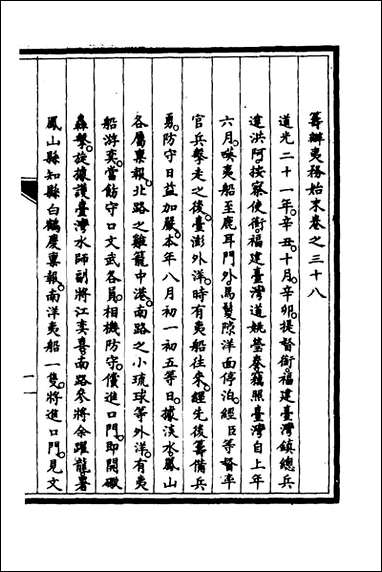 籌辦夷務始末卷之三十八
道光二十一年。辛丑。十月。辛卯。提督銜。福建臺灣鎮總兵
達洪阿。按察使銜。福建臺灣道姚瑩奏。竊照臺灣自上年
六月。𠸄夷船至鹿耳門外。馬鬃隙洋面停泊。經臣等督率
官兵擊走之後。臺澎外洋。時有夷船往來。經先後籌備兵
勇。防守日益加嚴。本年八月初一初五等日。據淡水。鳳山
各屬稟報。北路之雞籠中港。南路之小琉球等外洋。有夷
船游奕。當飭守口文武各員。相機防守。儻進口門。即開礮
轟擊。旋據護臺灣水師副將江奕喜。南路參將余躍龍。署
鳳山縣知縣白鶴慶稟報。南洋夷船一隻。將進口門。見文